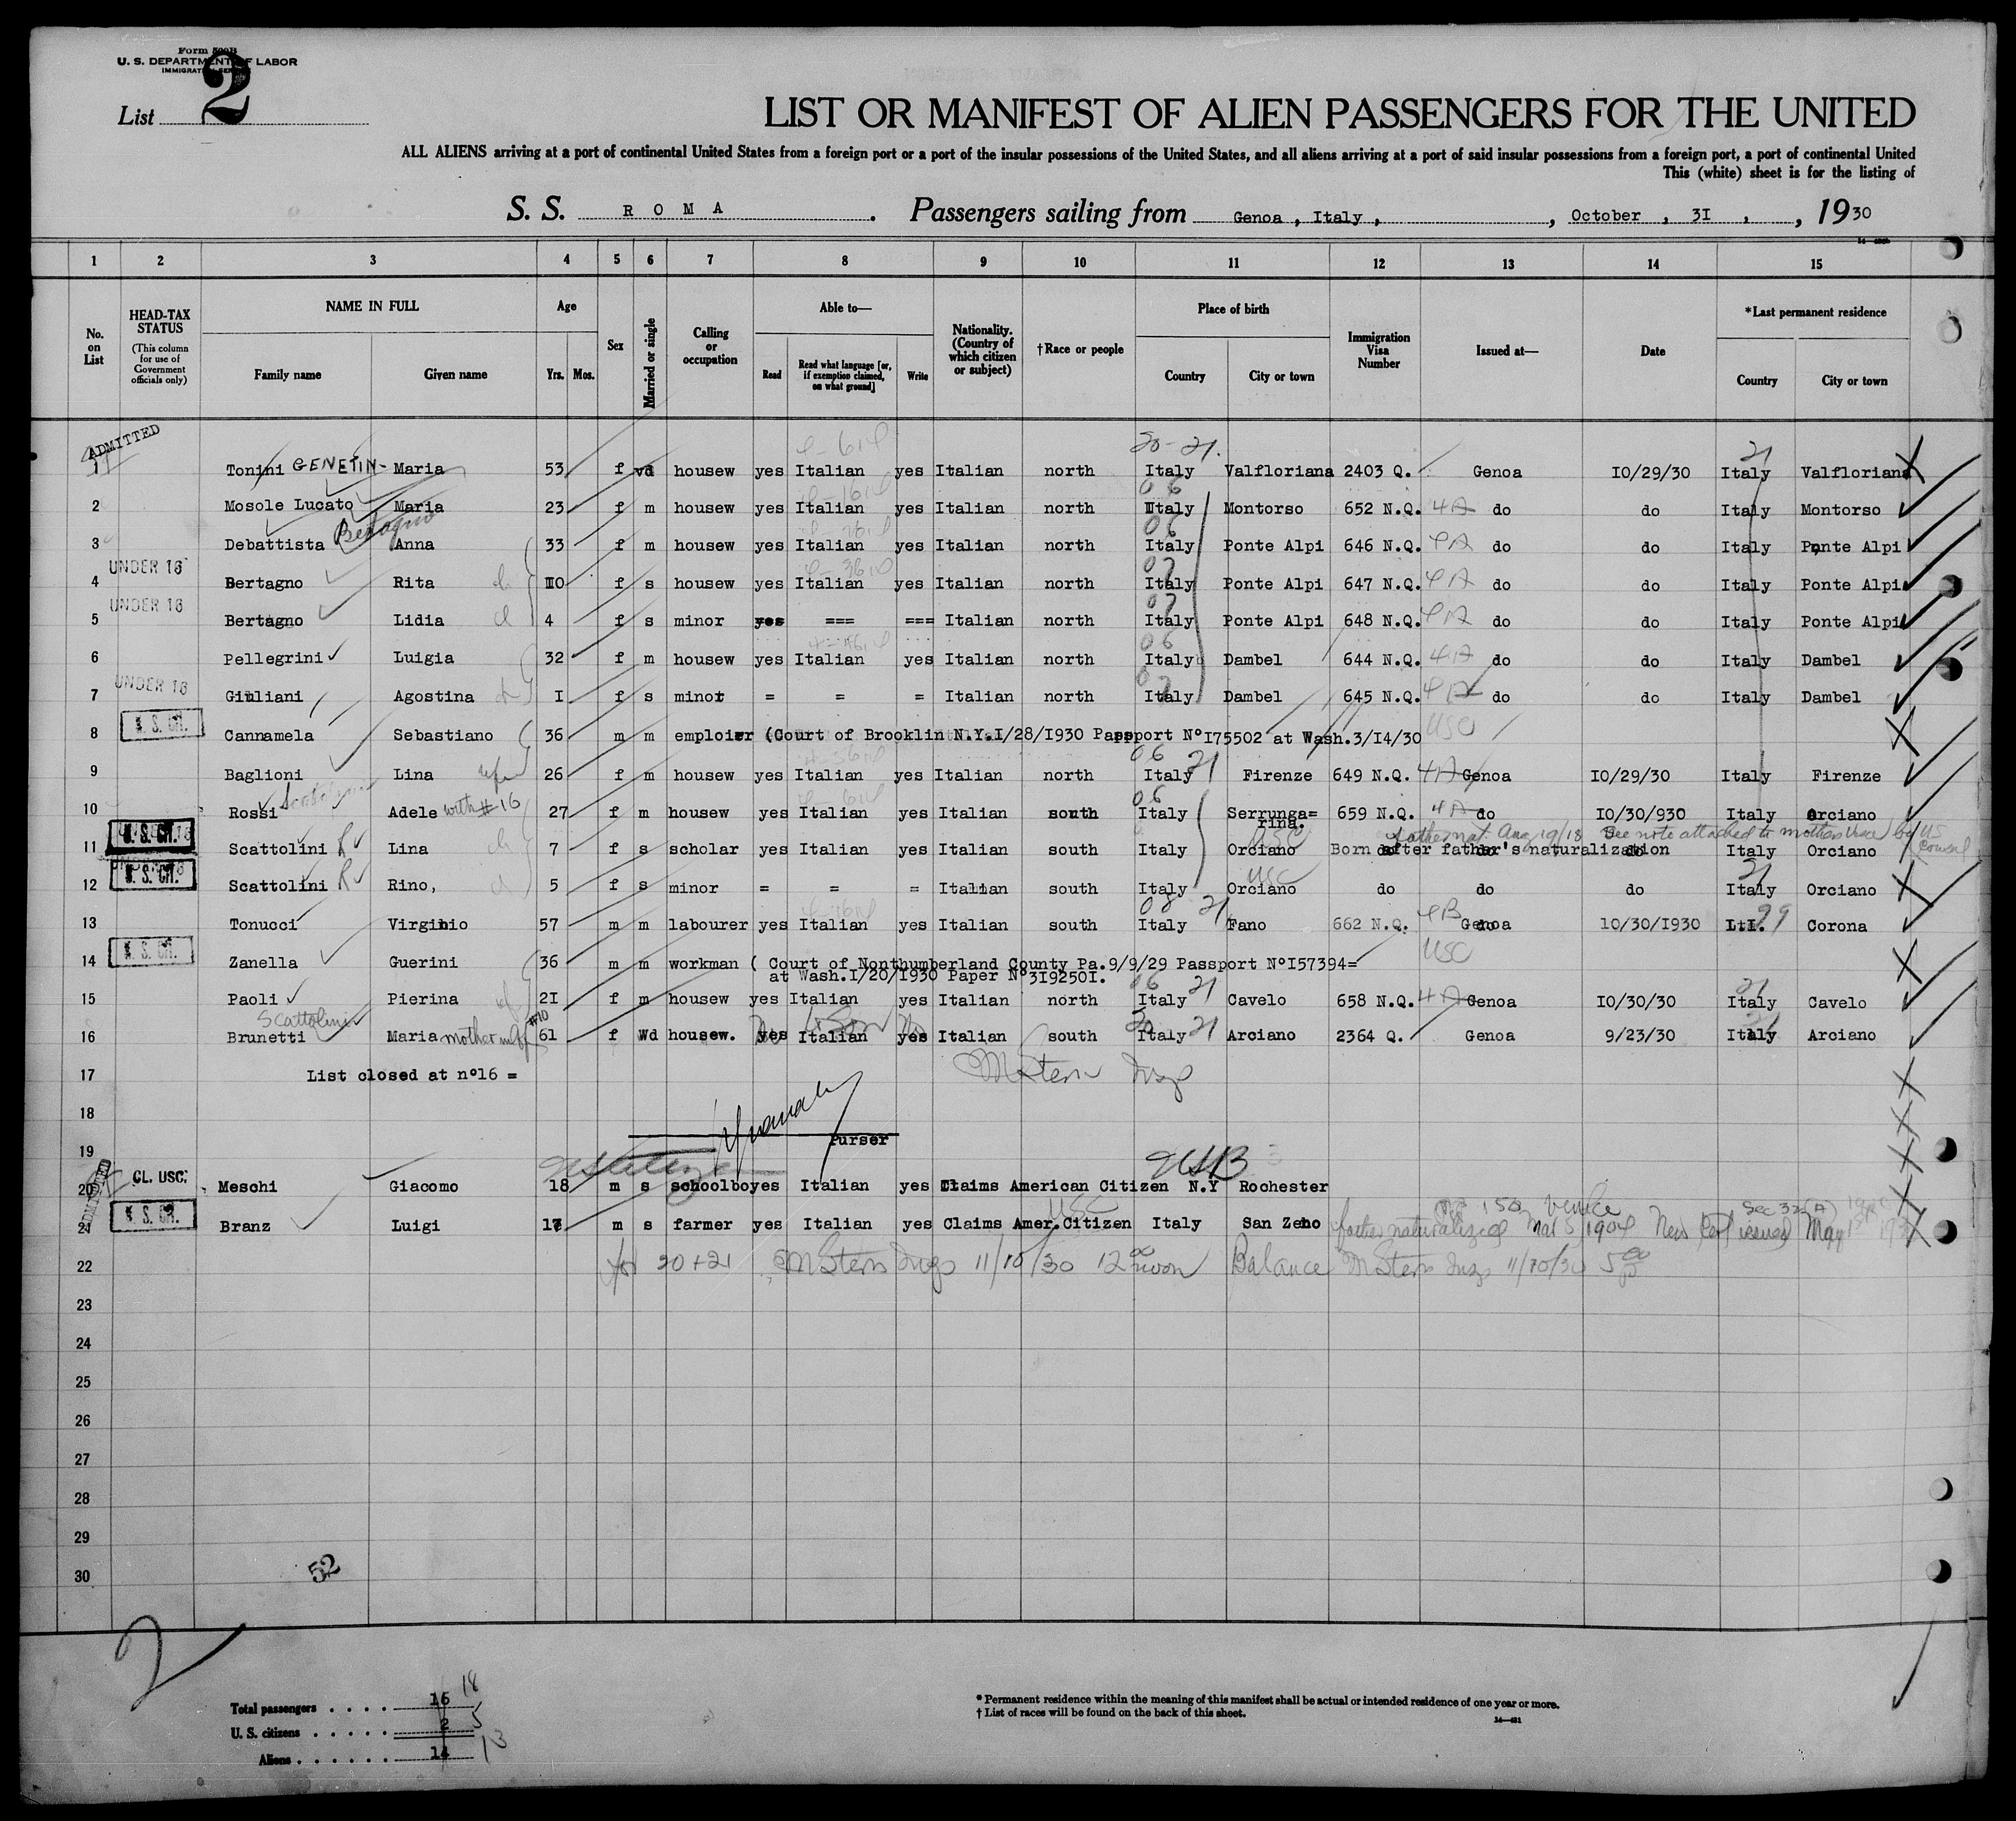 Form 500B
U. S. DEPARTMENT OF LABOR
IMMIGRATION SERVICE
List 2
LIST OR MANIFEST OF ALIEN PASSENGERS FOR THE UNITED
ALL ALIENS arriving at a port of continental United States from a foreign port or a port of the insular possessions of the United States, and all aliens arriving at a port of said insular possessions from a foreign port, a port of continental United
This (white) sheet is for the listing of
S. S. ROMA . Passengers sailing from Genoa , Italy , , October , 3I , , 1930
1 2 3 4 5 6 7 8 9 10 11 12 13 14 15
No. on List
HEAD-TAX STATUS (This column for use of Government officials only)
NAME IN FULL Family name Given name
Age Yrs. Mos.
Sex
Married or single
Calling or occupation
Able to— Read Read what language [or, if exemption claimed, on what ground] Write
Nationality. (Country of which citizen or subject)
†Race or people
Place of birth Country City or town
Immigration Visa Number
Issued at—
Date
*Last permanent residence Country City or town
ADMITTED
20-21. 21
1 Tonini GENETIN- Maria 53 f wd housew yes Italian yes Italian north Italy Valfloriana 2403 Q. Genoa IO/29/30 Italy Valfloriana
06
2 Mosole Lucato Maria 23 f m housew yes Italian yes Italian north Italy Montorso 652 N.Q. 4A do do Italy Montorso
Bertagno 06
3 Debattista Anna 33 f m housew yes Italian yes Italian north Italy Ponte Alpi 646 N.Q. 4A do do Italy Ponte Alpi
UNDER 16 07
4 Bertagno Rita IO f s housew yes Italian yes Italian north Italy Ponte Alpi 647 N.Q. 4A do do Italy Ponte Alpi
UNDER 16 07
5 Bertagno Lidia 4 f s minor yes === === Italian north Italy Ponte Alpi 648 N.Q. 4A do do Italy Ponte Alpi
06
6 Pellegrini Luigia 32 f m housew yes Italian yes Italian north Italy Dambel 644 N.Q. 4A do do Italy Dambel
UNDER 16 07
7 Giuliani Agostina I f s minor = = = Italian north Italy Dambel 645 N.Q. 4A do do Italy Dambel
U. S. CIT.
8 Cannamela Sebastiano 36 m m emploier (Court of Brooklin N.Y.I/28/I930 Passport N°I75502 at Wash.3/I4/30 USC
06 21
9 Baglioni Lina wife 26 f m housew yes Italian yes Italian north Italy Firenze 649 N.Q. 4A Genoa IO/29/30 Italy Firenze
06
10 Rossi Adele with #16 27 f m housew yes Italian yes Italian south Italy Serrunga= 659 N.Q. 4A do IO/30/930 Italy Orciano
rina.
U. S. CIT. USC father nat. Aug 19/18 See note attached to mothers visa by US Consul
11 Scattolini Lina 7 f s scholar yes Italian yes Italian south Italy Orciano Born after father's naturalization Italy Orciano
U. S. CIT. USC 21
12 Scattolini Rino, 5 f s minor = = = Italian south Italy Orciano do do do Italy Orciano
08 21 4B 99
13 Tonucci Virginio 57 m m labourer yes Italian yes Italian south Italy Fano 662 N.Q. Genoa 10/30/I930 L.I. Corona
U. S. CIT. USC
14 Zanella Guerini 36 m m workman ( Court of Nonthumberland County Pa.9/9/29 Passport N°I57394=
at Wash.I/20/I930 Paper N°3I9250I.
06 21 21
15 Paoli Pierina 2I f m housew yes Italian yes Italian north Italy Cavelo 658 N.Q. 4A Genoa IO/30/30 Italy Cavelo
Scattolini #10 No No 20 21
16 Brunetti Maria mother in law 61 f Wd housew. yes Italian yes Italian south Italy Arciano 2364 Q. Genoa 9/23/30 Italy Arciano
17 List closed at n°16 = M Stern Insp
18
19 Purser
ADMITTED
20 CL. USC. Meschi Giacomo 18 m s schoolbo yes Italian yes Claims American Citizen N.Y Rochester
U. S. CIT. USC No 150 Venice Sec 32(A)
21 Branz Luigi 17 m s farmer yes Italian yes Claims Amer.Citizen Italy San Zeno father naturalized Mar 5 1904 New Cert issued May
22 for 20+21 M Stern Insp 11/10/30 12 00 noon Balance M Stern Insp 11/10/30 5 00
23
24
25
26
27
28
29
30
52
2
Total passengers . . . . 16 18
U. S. citizens . . . . . 2 5
Aliens . . . . . . 14 13
* Permanent residence within the meaning of this manifest shall be actual or intended residence of one year or more.
† List of races will be found on the back of this sheet.